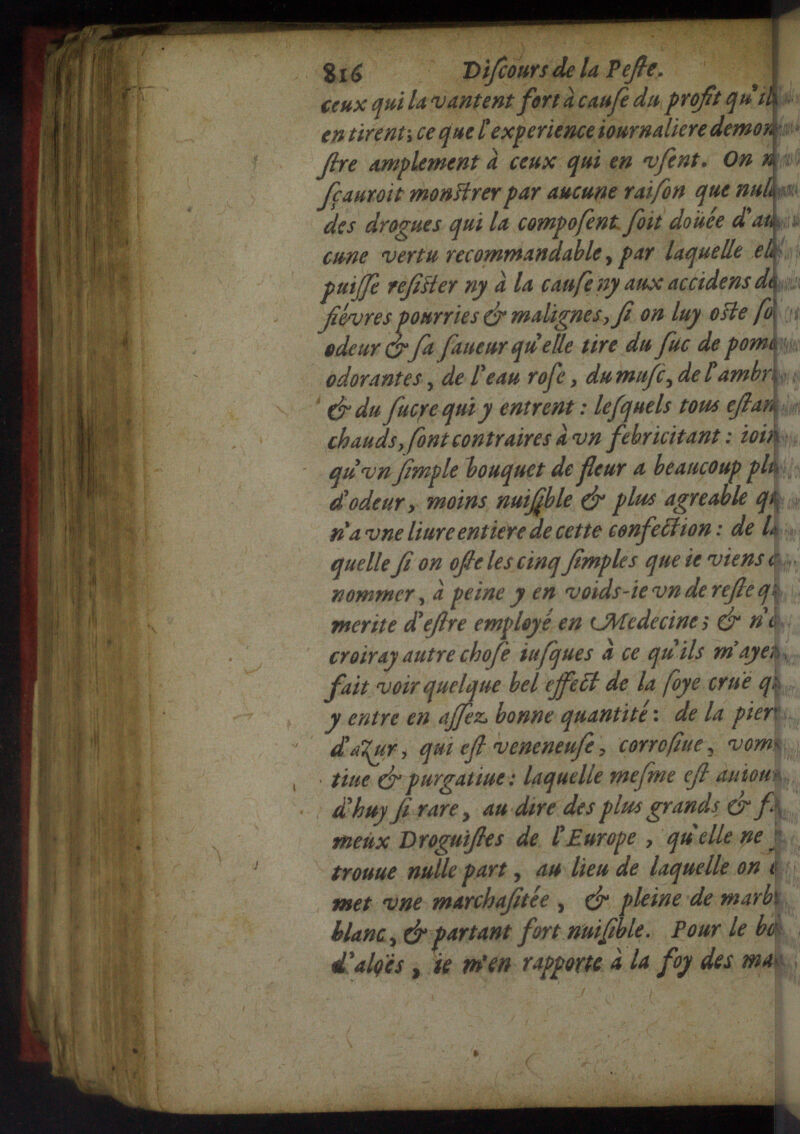 816 Diſcours de la Peſte.
ceux qui la vantent fort à cauſe du profit qu'il
en tirent; ce que l'experience iournaliere demon
ſtre amplement à ceux qui en vſent. On
ſçauroit monſtrer par aucune raiſon que nulle
des drogues qui la compoſent ſoit doüée d'au
cune vertu recommandable, par laquelle elle
puiſſe reſiſter ny à la cauſe ny aux accidens de
fiévres pourries & malignes, ſi on luy oſte ſo
odeur & ſa ſaueur qu'elle tire du ſuc de pom
odorantes, de l'eau roſe, du muſc, de l'ambr
& du ſucre qui y entrent : leſquels tous eſtan
chauds, ſont contraires à vn febricitant : ioin
qu'vn ſimple bouquet de fleur a beaucoup pl
d'odeur, moins nuiſible & plus agreable q
n'a vne liure entiere de cette confection : de la
quelle ſi on oſte les cinq ſimples que ie viens d
nommer, à peine y en voids-ie vn de reſte q
merite d'eſtre employé en Medecine; & n'
croiray autre choſe iuſques à ce qu'ils m'ayen
fait voir quelque bel effect de la ſoye cruë q
y entre en aſſez bonne quantité : de la pier
d'azur, qui eſt veneneuſe, corroſiue, vomi
tiue & purgatiue : laquelle meſme eſt auiour
d'huy ſi rare, au dire des plus grands & f
meux Droguiſtes de l'Europe, qu'elle ne
trouue nulle part, au lieu de laquelle on
met vne marchaſitée, & pleine de marb
blanc, & partant fort nuiſible. Pour le bo
d'aloës, ie m'en rapporte à la foy des ma